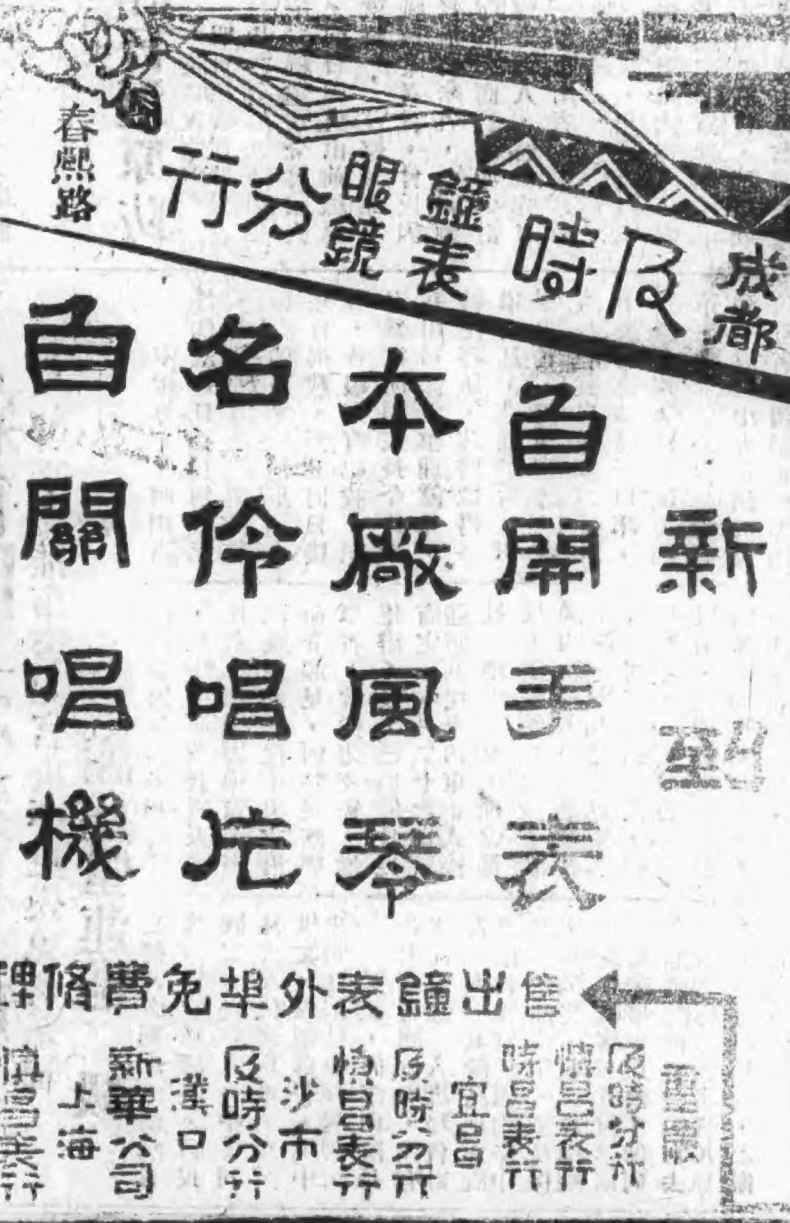 成都
及時
鐘表
眼鏡
分行
春熙路
新到
自開手表
本廠風琴
名伶唱片
自關唱機
售出鐘表外埠免費修理
重慶
及時分行
慎昌表行
時昌表行
宜昌
及時分行
慎昌表行
沙市
及時分行
漢口
新華公司
上海
慎昌表行